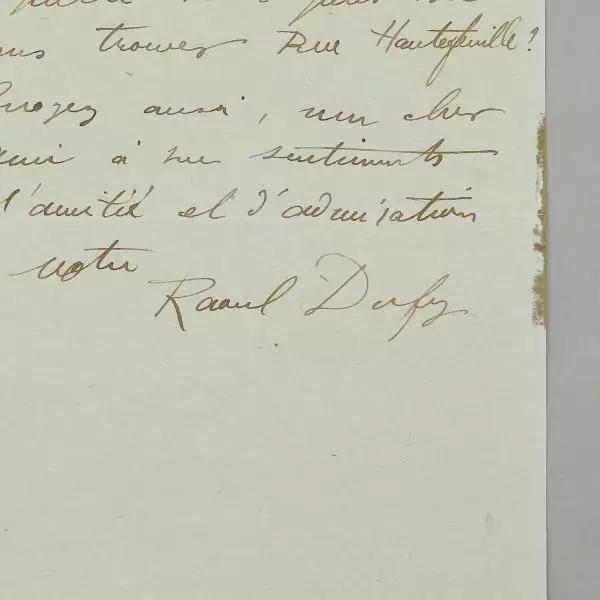 trouver Rue Hautefeuille?
aussi, mon cher
à mes sentiments
d'amitié et d'admiration
votre
Raoul Dufy